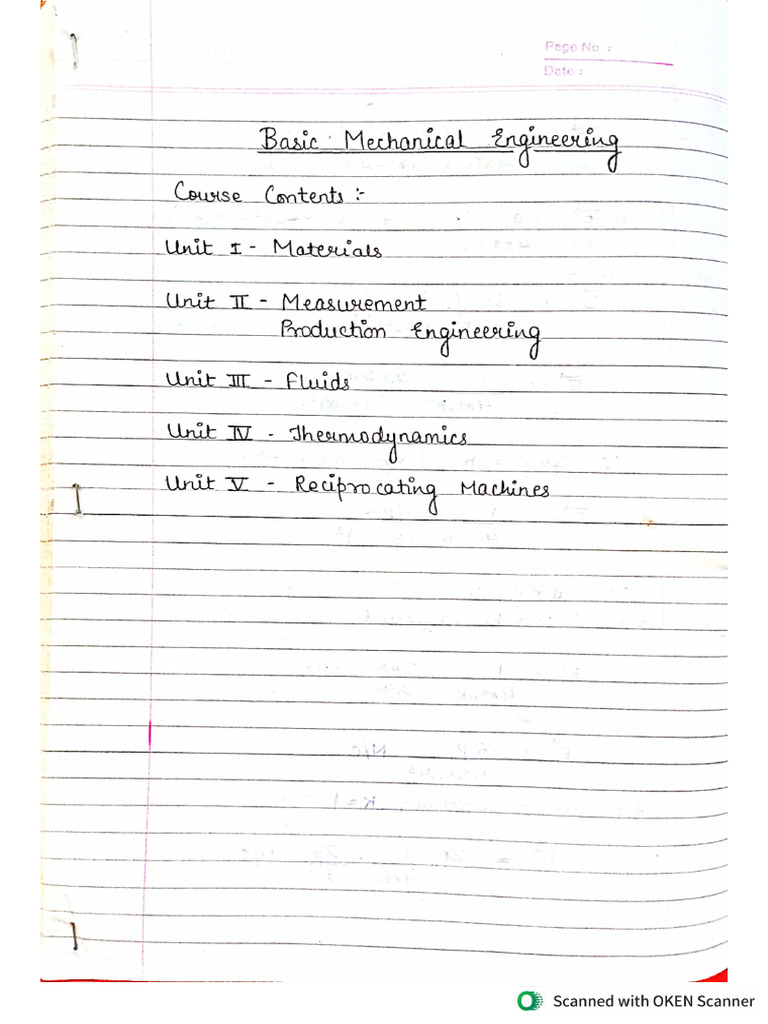 Page No. :
Date :
Basic Mechanical Engineering
Course Contents :-
Unit I - Materials
Unit II - Measurement
Production Engineering
Unit III - Fluids
Unit IV - Thermodynamics
Unit V - Reciprocating Machines
Scanned with OKEN Scanner